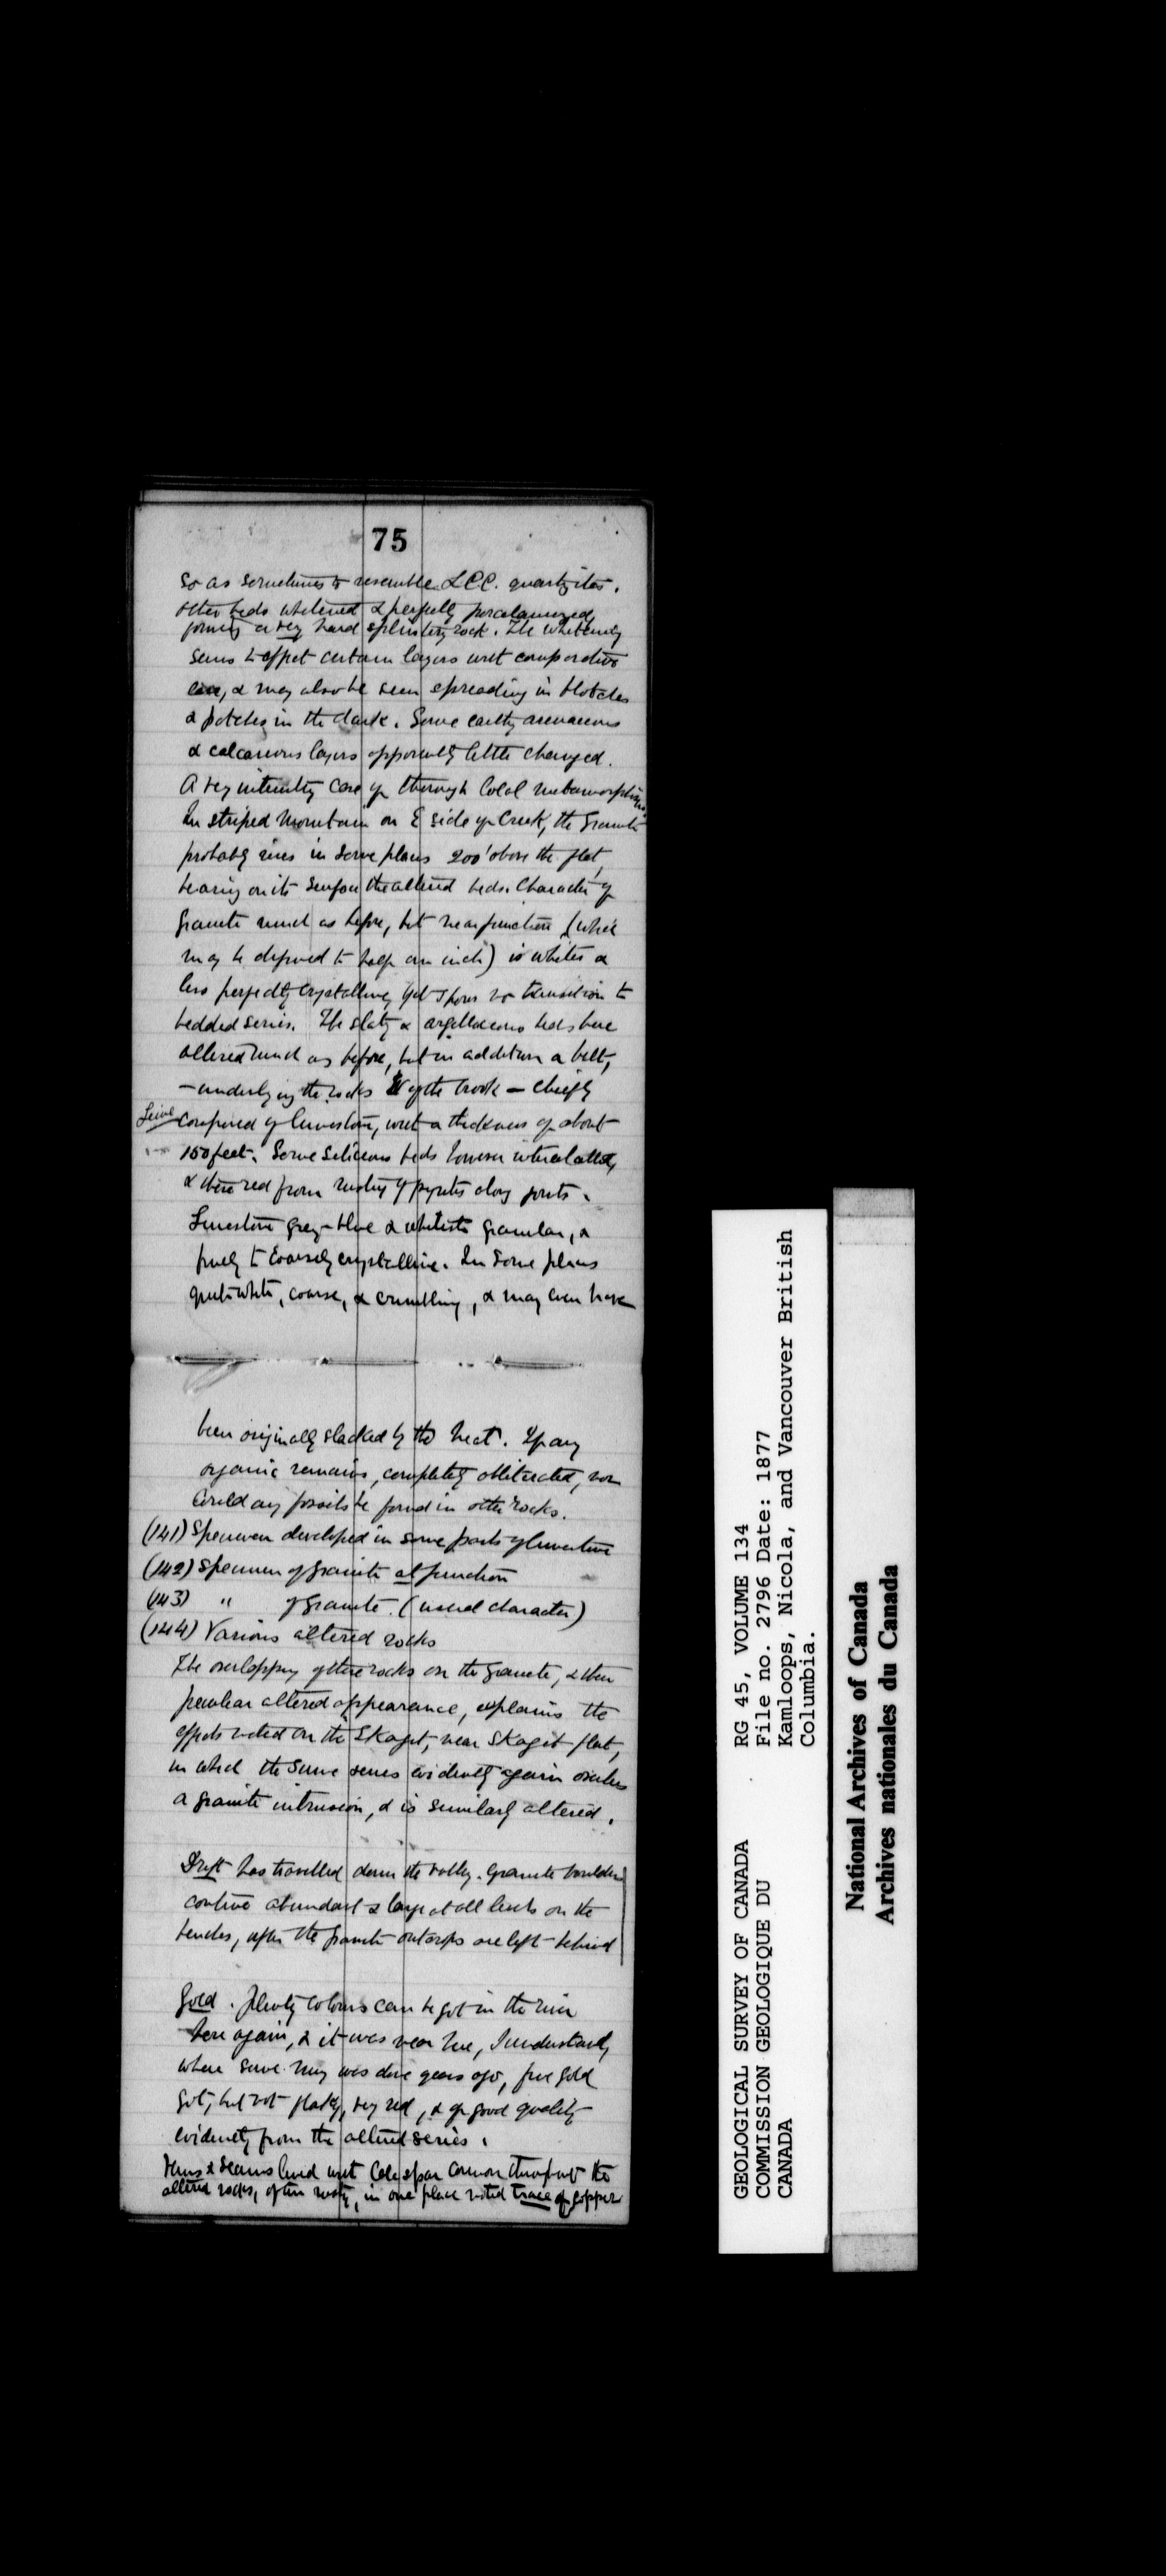 75
So as sometimes to resemble L.C.C. quartzites.
Other beds whitened & perfectly porcelainized
forming a very hard splintery rock. The whitening
seems to affect certain layers with comparative
ease, & may also be seen spreading in blotches
& patches in the dark. Some earthy arenaceous
& calcareous layers apparently little changed.
A very interesting case of thorough local metamorphism
In striped Mountain on E side of Creek, the Granite
probably rises in some places 200' above the flat,
bearing on its surface the altered beds. Character of
Granite much as before, but near junction (which
may be defined to half an inch) is whiter &
less perfectly crystalline, yet shows no transition to
bedded series. The slaty & argillaceous beds here
altered much as before, but in addition a belt,
– underlying the rocks W of the brook – chiefly
Lime composed of limestone, with a thickness of about
150 feet. Some Silicious beds however intercalated,
& these red from rusting of pyrites along joints.
Limestone grey-blue & whitish granular, &
finely to coarsely crystalline. In some places
quite white, coarse, & crumbling, & may even have
been originally slacked by the heat. If any
organic remains, completely obliterated, nor
could any fossils be found in other rocks.
(141) Specimen developed in some parts of limestone
(142) Specimen of Granite at junction
(143) " of Granite. (usual character)
(144) Various altered rocks
The overlapping of these rocks on the Granite, & their
peculiar altered appearance, explains the
effects noted on the Skagit, near Skagit flat,
in which the same series evidently again
a granite intrusion, & is similarly altered.
Drift has travelled down the valley. Granite boulders
continue abundant & large at all levels on the
benches, after the granite outcrops are left behind
Gold. Plenty colours can be got in the river
here again, & it was near here, I understand,
where some was done years ago, fine gold
got, but not flaky, very red, & of good quality
evidently from the altered series.
Veins & seams lined with Calc spar common throughout the
altered rocks, often rusty, in one place noted trace of copper
RG 45, VOLUME 134
File no. 2796 Date: 1877
Kamloops, Nicola, and Vancouver British
Columbia.
GEOLOGICAL SURVEY OF CANADA
COMMISSION GEOLOGIQUE DU
CANADA
National Archives of Canada
Archives nationales du Canada